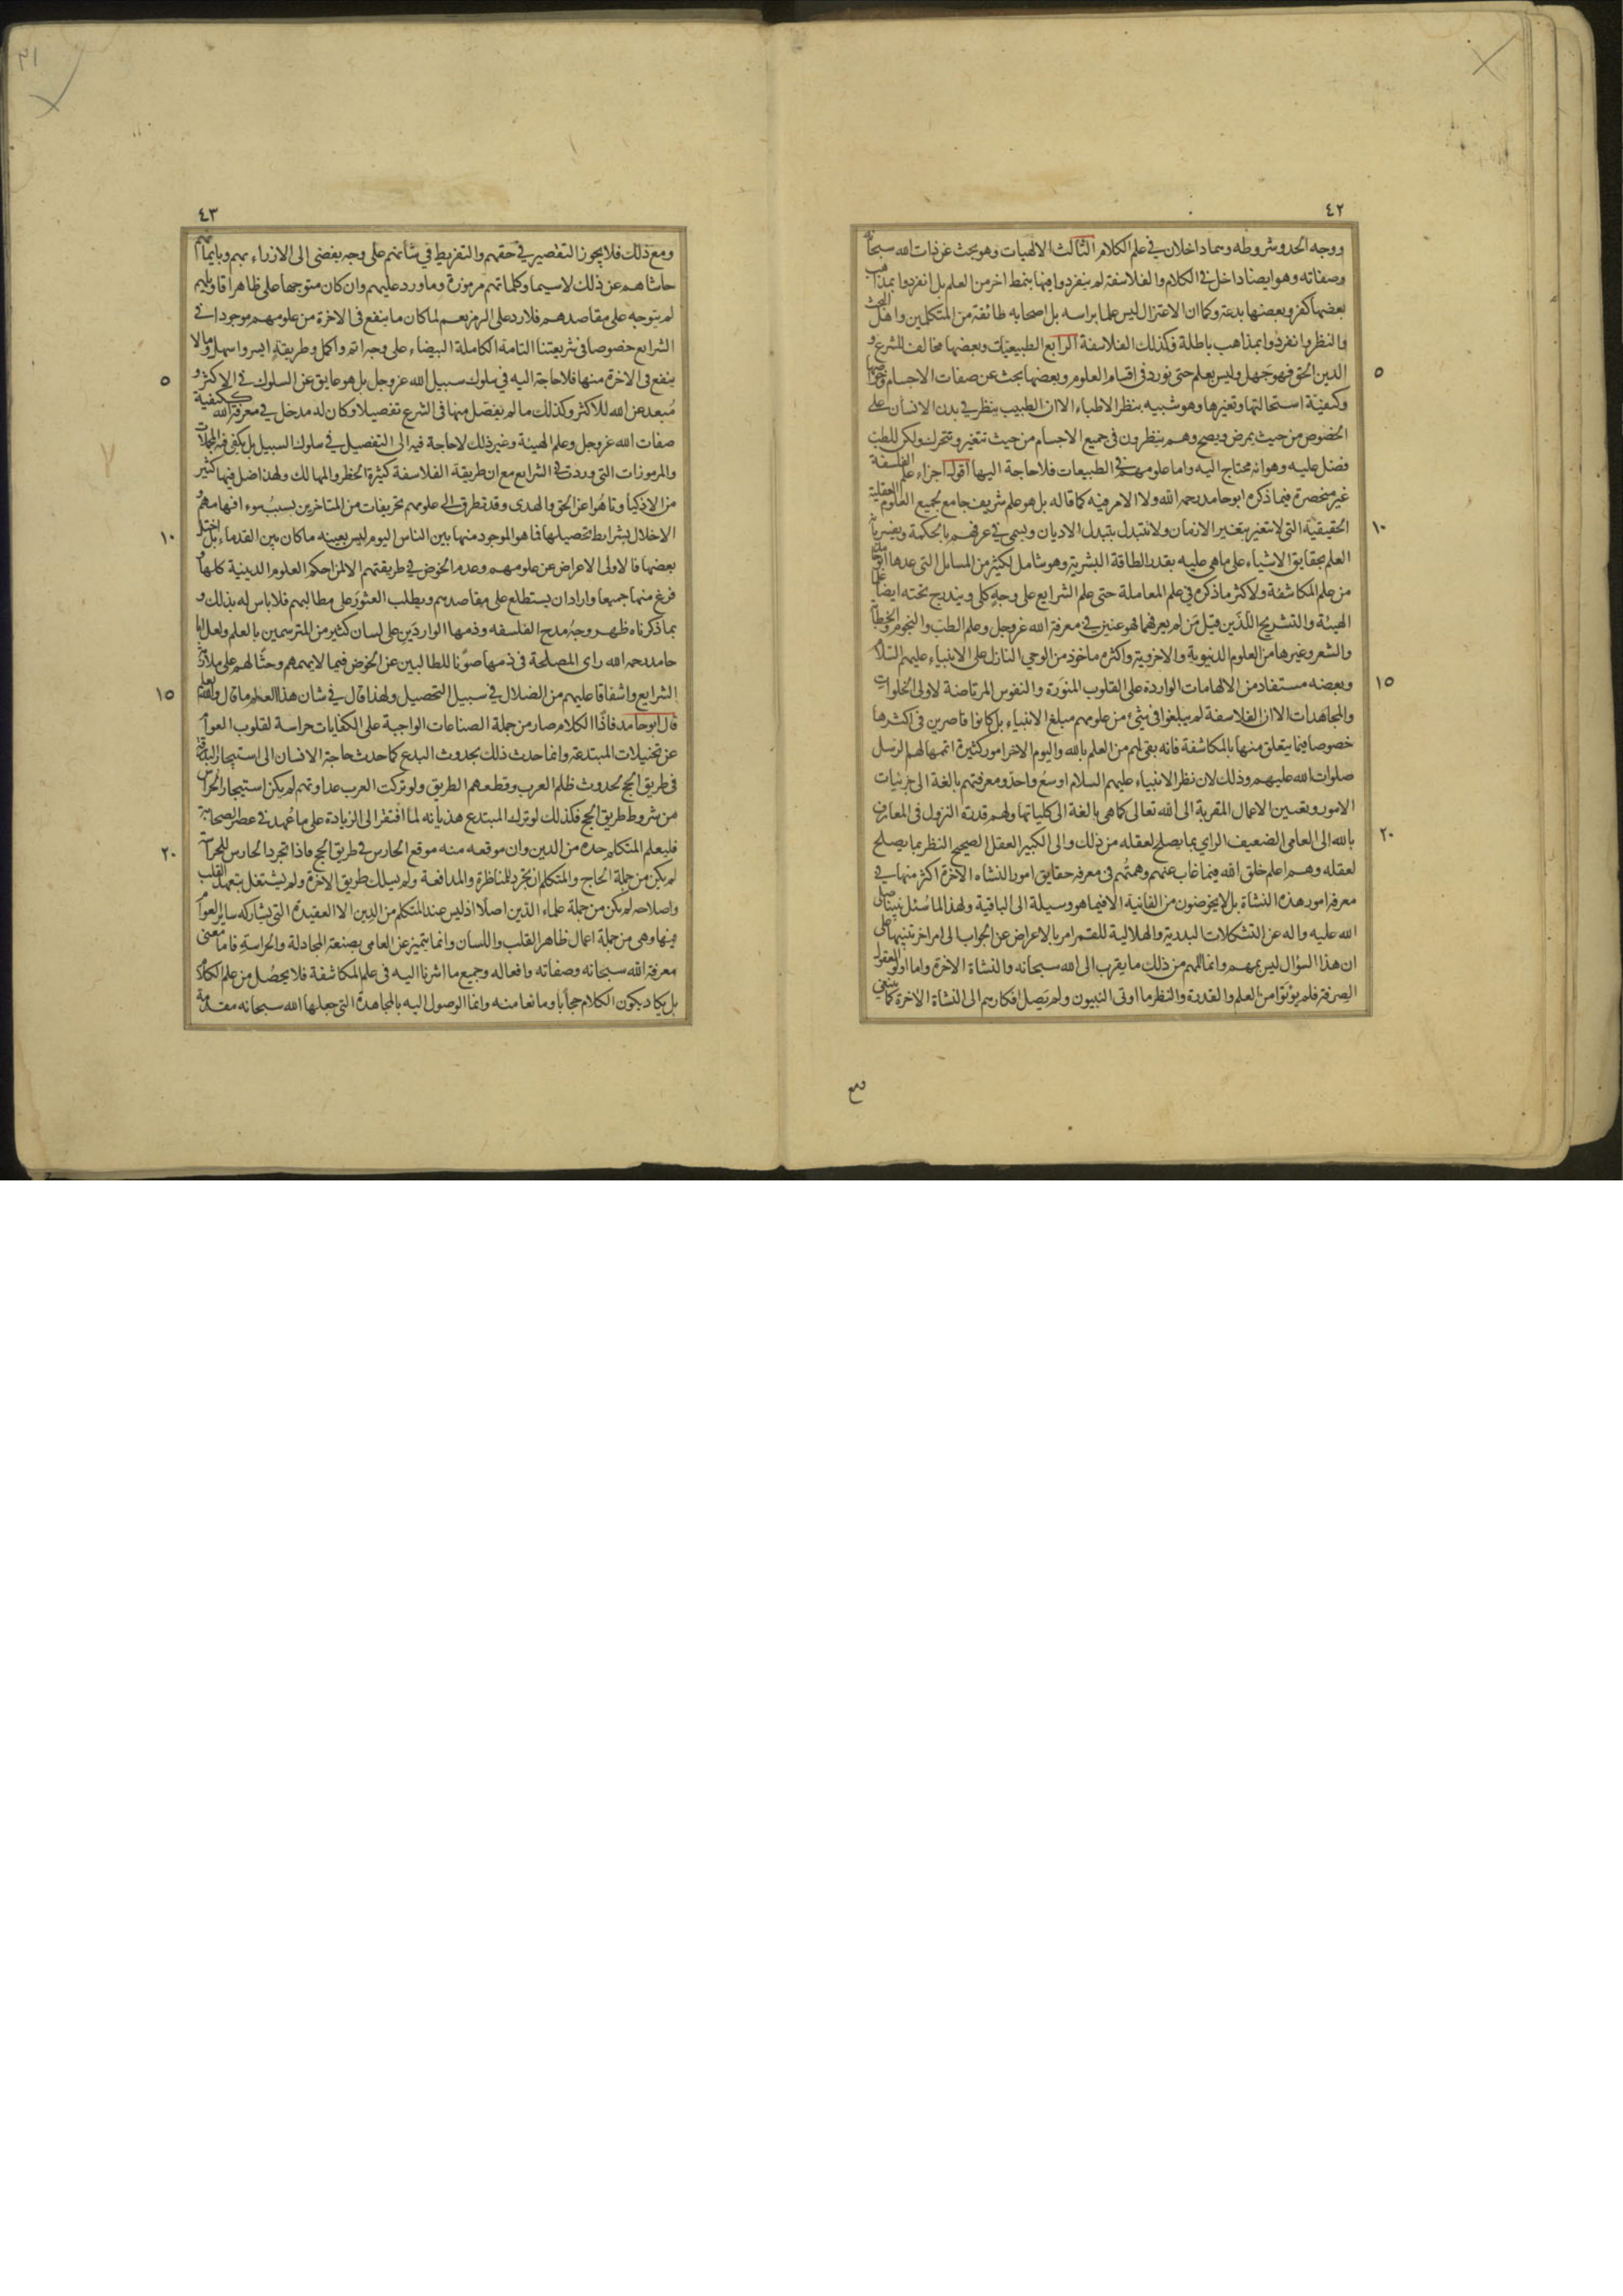 ٤٢
ووجه الحد وشروطه وهما داخلان في علم الكلام الثالث الالهيات وهو بحث عن ذات الله سبحانه
وصفاته وهو ايضا داخل في الكلام والفلاسفة لم ينفردوا فيها بنمط اخر من العلم بل انفردوا بمذاهب
بعضها كفر وبعضها بدعة وكما ان الاعتزال ليس علما براسه بل اصحابه طائفة من المتكلمين واهل البحث
والنظر وانفردوا بمذاهب باطلة فكذلك الفلاسفة الرابع الطبيعيات وبعضها مخالف للشرع و
الدين الحق فهو جهل وليس بعلم حتى نورد في اقسام العلوم وبعضها بحث عن صفات الاجسام وخواصها
٥
وكيفية استحالتها وتغيرها وهو شبيه بنظر الاطباء الا ان الطبيب ينظر في بدن الانسان على
الخصوص من حيث يمرض ويصح وهم ينظرون في جميع الاجسام من حيث تتغير وتتحرك ولكن للطب
فضل عليه وهو انه محتاج اليه واما علومهم في الطبيعات فلا حاجة اليها اقول اجزاء علم الفلسفة
غير منحصرة فيما ذكره ابو حامد رحمه الله ولا الامر فيه كما قاله بل هو علم شريف جامع لجميع العلوم العقلية
الحقيقية التي لا تتغير بتغير الازمان ولا تتبدل بتبدل الاديان ويسمى في عرفهم بالحكمة ويفسر بانه
١٠
العلم بحقايق الاشياء على ما هي عليه بقدر الطاقة البشرية وهو شامل لكثير من المسايل التي عدها ابو حامد
من علم المكاشفة ولاكثر ما ذكره في علم المعاملة حتى علم الشرايع على وجه كلي ويندرج تحته ايضا علما
الهيئة والتشريح اللذين قيل من لم يعرفهما فهو عنين في معرفة الله عز وجل وعلم الطب والنجوم والخطابة
والشعر وغيرها من العلوم الدنيوية والاخروية واكثره ماخوذ من الوحي النازل على الانبياء عليهم السلام
وبعضه مستفاد من الالهامات الواردة على القلوب المنورة والنفوس المرتاضة لاولي الخلوات
١٥
والمجاهدات الا ان الفلاسفة لم يبلغوا في شئ من علومهم مبلغ الانبياء بل كانوا قاصرين في اكثرها
خصوصا فيما يتعلق منها بالمكاشفة فانه بقي لهم من العلم بالله واليوم الاخر امور كثيرة اتمها لهم الرسل
صلوات الله عليهم وذلك لان نظر الانبياء عليهم السلام اوسع واحد ومعرفتهم بالغة الى جزئيات
الامور وتعيين الاعمال المقربة الى الله تعالى كما هي بالغة الى كلياتها ولهم قدرة النزول في المعارف
بالله الى العامي الضعيف الراي بما يصلح لعقله من ذلك والى الكبير العقل الصحيح النظر بما يصلح
٢٠
لعقله وهم اعلم خلق الله فيما غاب عنهم وهمتهم في معرفة حقايق امور النشاة الاخرة اكثر منها في
معرفة امور هذه النشاة بل لا يخوضون من الفانية الا فيما هو وسيلة الى الباقية ولهذا لما سئل نبينا صلى
الله عليه واله عن التشكلات البدرية والهلالية للقمر امر بالاعراض عن الجواب الى امر اخر تنبيها على
ان هذا السؤال ليس بمهم وانما المهم من ذلك ما يقرب الى الله سبحانه والنشاة الاخرة واما اولوا العقول
الصرفة فلم يؤتوا من العلم والقدرة والنظر ما اوتى النبيون ولم يصل افكارهم الى النشاة الاخرة كما ينبغي
٤٣
ومع ذلك فلا يجوز التقصير في حقهم والتفريط في شأنهم على وجه يفضي الى الازراء بهم وبايمانهم
حاشاهم عن ذلك لا سيما وكلماتهم مرموزة وما ورد عليهم وان كان متوجها على ظاهر اقاويلهم
لم يتوجه على مقاصدهم فلا رد على الرمز نعم لما كان ما ينفع في الاخرة من علومهم موجودا في
الشرايع خصوصا في شريعتنا التامة الكاملة البيضاء على وجه اتم واكمل وطريقة ايسر واسهل وما لا
ينفع في الاخرة منها فلا حاجة اليه في سلوك سبيل الله عز وجل بل هو عايق عن السلوك في الاكثر و
٥
مبعد عن الله للاكثر وكذلك ما لم يفصل منها في الشرع تفصيلا وكان له مدخل في معرفة الله ككيفية
صفات الله عز وجل وعلم الهيئة وغير ذلك لا حاجة فيه الى التفصيل في سلوك السبيل بل يكفي فيه المجملات
والمرموزات التي وردت في الشرايع مع ان طريقة الفلاسفة كثيرة الخطر والمهالك ولهذا ضل فيها كثير
من الاذكياء وتاهوا عن الحق والهدى وقد تطرق الى علومهم تحريفات من المتاخرين بسبب سوء افهامهم و
الاخلال بشرايط تحصيلها فما هو الموجود منها بين الناس اليوم ليس بعينه ما كان بين القدماء بل اختل
١٠
بعضها فالاولى الاعراض عن علومهم وعدم الخوض في طريقتهم الا لمن احكم العلوم الدينية كلها و
فرغ منها جميعا واراد ان يستطلع على مقاصدهم ويطلب العثور على مطالبهم فلا باس له بذلك و
بما ذكرناه ظهر وجه مدح الفلسفه وذمها الواردين على لسان كثير من المترسمين بالعلم ولعل ابا
حامد رحمه الله راى المصلحة في ذمها صونا للطالبين عن الخوض فيما لا يهمهم وحثا لهم على ملازمة
الشرايع واشفاقا عليهم من الضلال في سبيل التحصيل ولهذا قال في شان هذا العلم ما قال والله يعلم
١٥
قال ابو حامد فاذا الكلام صار من جملة الصناعات الواجبة على الكفايات حراسة لقلوب العوام
عن تخييلات المبتدعة وانما حدث ذلك بحدوث البدع كما حدث حاجة الانسان الى استيجار البذرقة
في طريق الحج بحدوث ظلم العرب وقطعهم الطريق ولو تركت العرب عداوتهم لم يكن استيجار الحراس
من شروط طريق الحج فكذلك لو ترك المبتدع هذيانه لما افتقر الى الزيادة على ما عهد في عصر الصحابة
فليعلم المتكلم حده من الدين وان موقعه منه موقع الحارس في طريق الحج فاذا تجرد الحارس للحراسة
٢٠
لم يكن من جملة الحاج والمتكلم ان تجرد للمناظرة والمدافعة ولم يسلك طريق الاخرة ولم يشتغل بتعهد القلب
واصلاحه لم يكن من جملة علماء الدين اصلا اذ ليس عند المتكلم من الدين الا العقيدة التي يشاركه سائر العوام
فيها وهي من جملة اعمال ظاهر القلب واللسان وانما يتميز عن العامي بصنعة المجادلة والحراسة فاما معنى
معرفة الله سبحانه وصفاته وافعاله وجميع ما اشرنا اليه في علم المكاشفة فلا يحصل من علم الكلام
بل يكاد يكون الكلام حجابا ومانعا منه وانما الوصول اليه بالمجاهدة التي جعلها الله سبحانه مقدمة